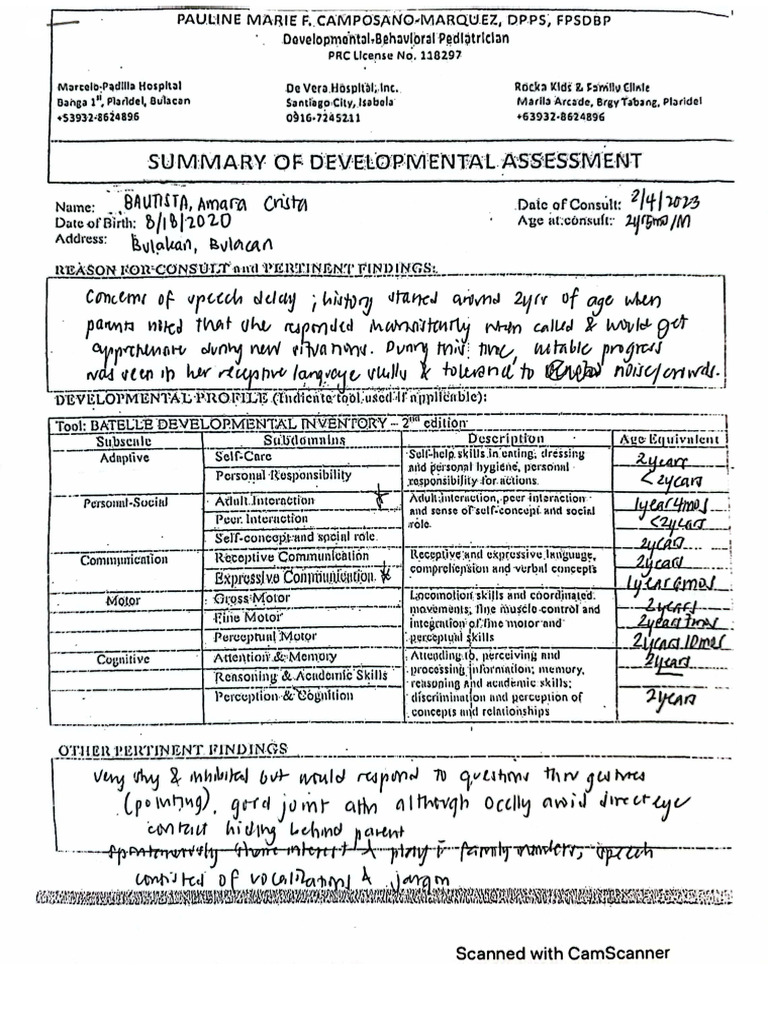 PAULINE MARIE F. CAMPOSANO-MARQUEZ, DPPS, FPSDBP
Developmental-Behavioral Pediatrician
PRC License No. 118297
Marcelo-Padilla Hospital De Vera Hospital, Inc. Rocka Kids & Family Clinic
Banga 1st, Plaridel, Bulacan Santiago City, Isabela Marila Arcade, Brgy Tabang, Plaridel
+53932-8624896 0916-7245211 +63932-8624896
SUMMARY OF DEVELOPMENTAL ASSESSMENT
Name: BAUTISTA, Amara Crista Date of Consult: 2/4/2023
Date of Birth: 8/18/2020 Age at consult:
Address: Bulakan, Bulacan
REASON FOR CONSULT and PERTINENT FINDINGS:
Concerns of speech delay ; history started around 2yrs of age when
parents noted that she responded inconsistently when called & would get
apprehensive during new situations. During this time, notable progress
was seen in her receptive language skills & tolerance to noise/crowds.
DEVELOPMENTAL PROFILE (Indicate tool used if applicable):
Tool: BATELLE DEVELOPMENTAL INVENTORY – 2nd edition
Subscale Subdomains Description Age Equivalent
Adaptive Self-Care Self-help skills in eating, dressing 2years
Personal Responsibility and personal hygiene, personal <2years
responsibility for actions.
Personal-Social Adult Interaction Adult interaction, peer interaction 1year4mos
Peer Interaction and sense of self-concept and social <2years
Self-concept and social role role. 2years
Communication Receptive Communication Receptive and expressive language, 2years
Expressive Communication comprehension and verbal concepts 1year6mos
Motor Gross Motor Locomotion skills and coordinated 2years
Fine Motor movements; fine muscle control and 2years7mos
Perceptual Motor integration of fine motor and 2years10mos
perceptual skills
Cognitive Attention & Memory Attending to, perceiving and 2years
Reasoning & Academic Skills processing information; memory,
Perception & Cognition reasoning and academic skills; 2years
discrimination and perception of
concepts and relationships
OTHER PERTINENT FINDINGS
very shy & inhibited but would respond to questions thru gestures
(pointing), good joint attn although occlly avoid direct eye
contact hiding behind parent
spontaneously share interest & play family members, speech
consisted of vocalizations & jargon
Scanned with CamScanner